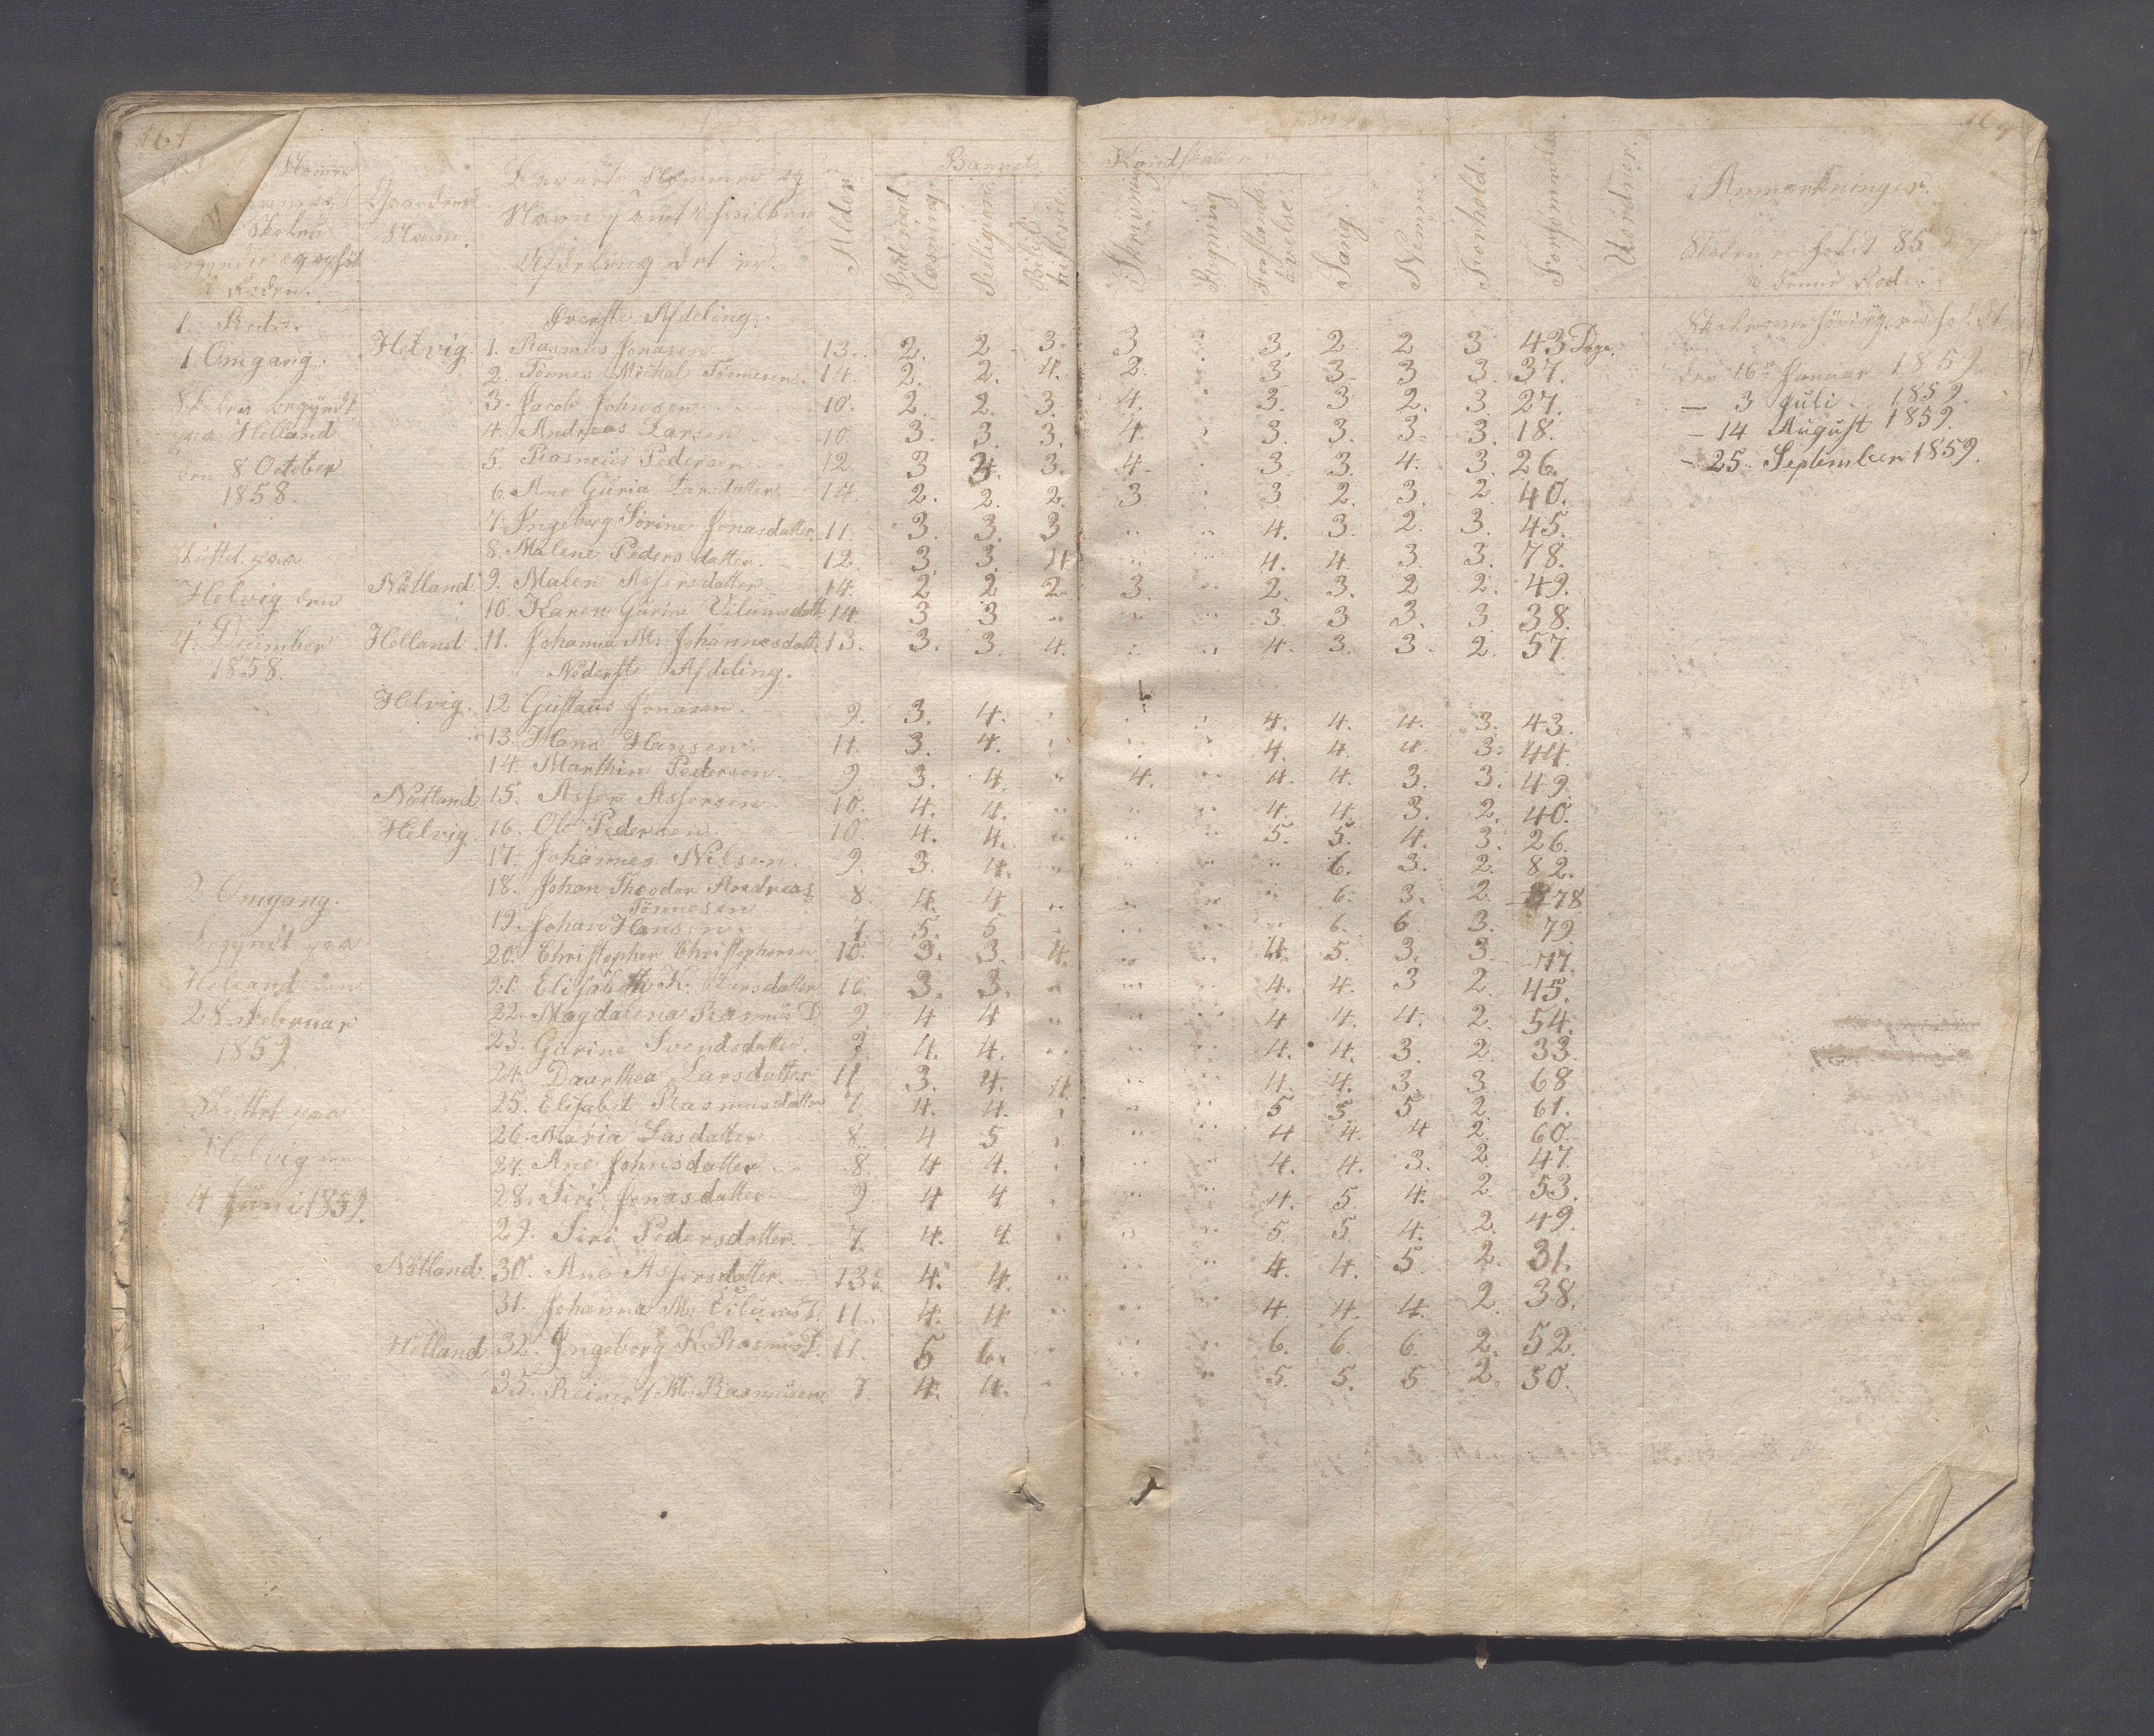 161
Gaardenes Navn.
Barnets Nommer og Navn samt i hvilken Afdeling det er.
Alder
Barnets Kundskaber
Indenad Læsning.
Religion
Bibelhistorie
Skrivning
Regning
Forstands øvelse.
Sang.
Nemme.
Forhold.
Forsømmelser
Uorden.
Anmærkninger.
Skolen er holdt 85 Dage
i denne Rode.
1. Rode.
Øverste Afdeling.
1 Omgang. Helvig 1. Rasmus Jonasen 13. 2. 2 3. 3 3. 2 2 3 43 Dage.
2. Tönnes Michal Tönnesen. 14. 2. 2. 4. 2. 3 3. 3 3. 37.
den 16 Januar 1859
Skolen begyndt 3. Jacob Johnsen 10. 2. 2. 3. 4. 3. 3 2. 3. 27.
— 3 Juli 1859.
paa Helland 4. Andreas Larsen 10. 3. 3. 3. 4. 3. 3. 3. 3. 18.
— 14 August 1859.
den 8 October 5. Rasmus Pedersen 12 3 4. 3. 4. 3. 3. 4. 3. 26.
- 25. September 1859.
1858. 6. Ane Guria Larsdatter 14. 2. 2. 2. 3 3 2. 3. 2 40.
7. Ingeborg Sörine Jonasdatter. 11. 3. 3. 3 4. 3. 2. 3. 45.
Skiftet paa 8. Malene Pedersdatter. 12. 3. 3. 4 4. 4. 3. 3. 78.
Helvig den Nötland 9. Malen Asfersdatter 14. 2 2 2 3. 2. 3. 2 2. 49.
10. Karen Gurine 14. 3 3 3. 3 3. 3 38.
4. December Helland 11. Johanna M. Johannesdatt. 13. 3. 3. 4. 4. 3. 3. 2. 57.
1858. Nederste Afdeling.
Helvig. 12 Gustaus Jonasen. 9. 3. 4. 4. 4. 4. 3. 43.
13. Hans Hansen. 11. 3. 4. 4. 4. 4. 3. 44.
14. Marthin Pedersen. 9. 3. 4. 4. 4. 4. 3. 3. 49.
Nötland 15. Asfer Asfersen 10. 4. 4. 4. 4. 3. 2. 40.
Helvig. 16. Ole Pedersen. 10. 4. 4. 5. 5. 4. 3. 26.
17. Johannes Nilsen. 9. 3. 4. 6. 3. 2. 82.
18. Johan Theodor Andreas Tönnesen 8. 4. 4 6. 3. 2. 78
2 Omgang. 19. Johan Hansen. 7. 5. 5 6. 6 3. 79.
begyndt paa 20. Christopher Christophersen 10. 3. 3. 4. 4. 5. 3. 3. 77.
Helland den 21. Elisabeth K. Larsdatter 10. 3. 3. 4. 4. 3 2. 45.
28. Februar 22. Magdalena Rasmus D. 9 4 4 4 4. 4. 2. 54.
1859. 23. Gurine Svendsdatter. 9. 4. 4. 4. 4. 3. 2. 33.
24. Daarthea Larsdatter 11 3. 4. 4. 4. 4. 3. 3. 68
Skiftet paa 25. Elisabet Rasmusdatter 7. 4. 4. 5 5 5 2. 61.
26. Maria Lasdatter 8. 4 5 4 4. 4 2. 60.
Helvig den 27. Ane Johnsdatter 8. 4 4. 4. 4. 3. 2. 47.
4 Juni 1859. 28. Siri Jonasdatter 9. 4 4 4. 5 4. 2 53.
29. Siri Pedersdatter 7. 4. 4. 5. 5 4. 2. 49.
Nötland. 30. Ane Asfersdatter. 13. 4. 4. 4. 4. 5. 2. 31.
31. Johanna M. 11. 4. 4 4. 4. 4. 2. 38.
Helland 32. Ingeborg K. Rasmus D. 11. 5 6. 6. 6. 6. 2. 52.
33. Reinert M. Rasmusen 7. 4. 4. 5. 5. 5 2. 50.